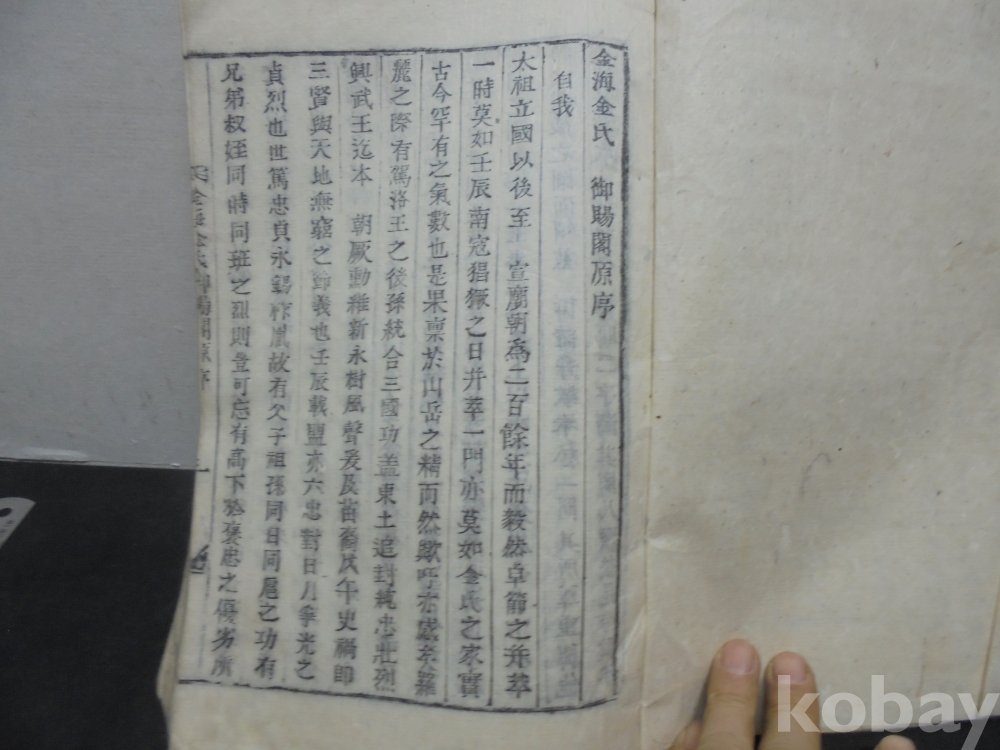 金海金氏 御賜閣原序
自我
太祖立國以後至 宣廟朝爲二百餘年而毅然卓節之幷萃
一時莫如壬辰南寇猖獗之日幷萃一門亦莫如金氏之家實
古今罕有之氣數也是果禀於山岳之精而然歟吁亦盛矣羅
麗之際有駕洛王之後孫統合三國功盖東土追封純忠壯烈
興武王迄本 朝厥勳維新永樹風聲爰及苗裔戊午史禍即
三賢與天地無窮之節義也壬辰載盟亦六忠對日月爭光之
貞烈也世篤忠貞永錫祚胤故有父子祖孫同日同扈之功有
兄弟叔姪同時同班之烈則豈可忘有高下於褒忠之優劣所
金海金氏御賜閣原序
kobay